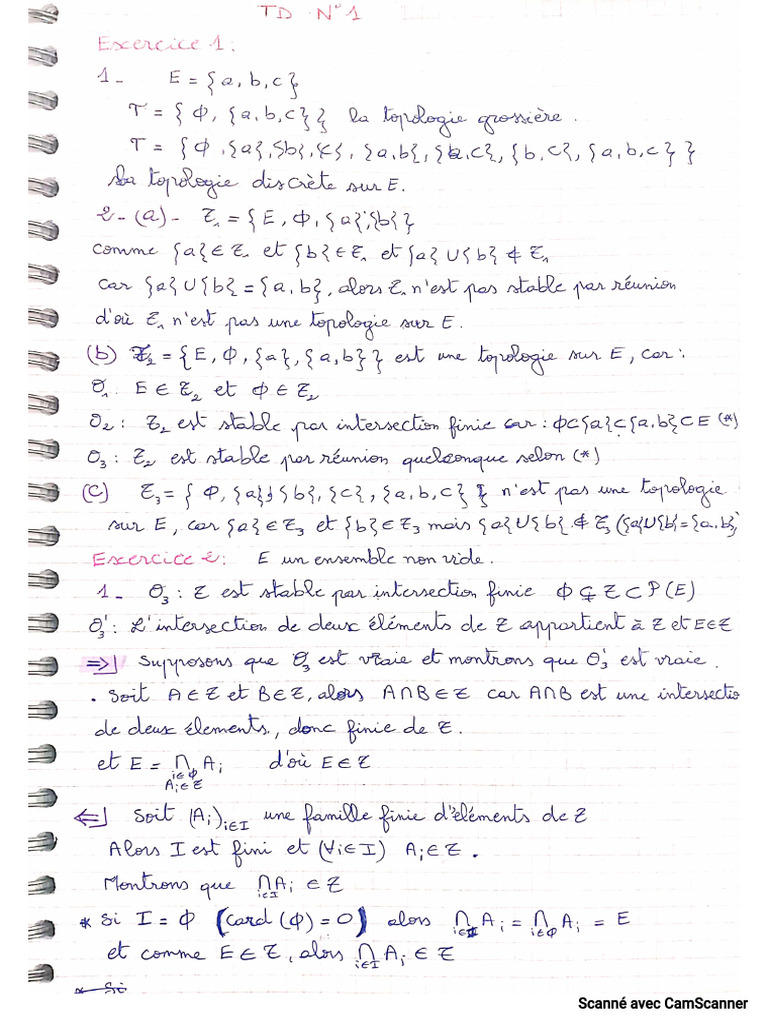 TD N°1
Exercice 1:
1- E = {a, b, c}
τ = {Φ, {a, b, c}} la topologie grossière.
τ = {Φ, {a}, {b}, {c}, {a, b}, {a, c}, {b, c}, {a, b, c}}
la topologie discrète sur E.
2-(a)- τ₁ = {E, Φ, {a}, {b}}
comme {a} ∈ τ₁ et {b} ∈ τ₁ et {a} ∪ {b} ∉ τ₁
car {a} ∪ {b} = {a, b}, alors τ₁ n'est pas stable par réunion
d'où τ₁ n'est pas une topologie sur E.
(b) τ₂ = {E, Φ, {a}, {a, b}} est une topologie sur E, car:
O₁: E ∈ τ₂ et Φ ∈ τ₂
O₂: τ₂ est stable par intersection finie car: Φ ⊂ {a} ⊂ {a, b} ⊂ E (*)
O₃: τ₂ est stable par réunion quelconque selon (*)
(C) τ₃ = {Φ, {a}, {b}, {c}, {a, b, c}} n'est pas une topologie
sur E, car {a} ∈ τ₃ et {b} ∈ τ₃ mais {a} ∪ {b} ∉ τ₃ ({a} ∪ {b} = {a, b}
Exercice 2: E un ensemble non vide.
1- O₃: τ est stable par intersection finie Φ ⊊ τ ⊂ P(E)
O'₃: L'intersection de deux éléments de τ appartient à τ et E ∈ τ
⇒| Supposons que O₃ est vraie et montrons que O'₃ est vraie.
. Soit A ∈ τ et B ∈ τ, alors A ∩ B ∈ τ car A ∩ B est une intersectio
de deux élements, donc finie de τ.
et E = ∩ Aᵢ d'où E ∈ τ
i∈Φ
Aᵢ∈τ
⇐| Soit (Aᵢ)i∈I une famille finie d'éléments de τ
Alors I est fini et (∀i∈I) Aᵢ ∈ τ.
Montrons que ∩i∈I Aᵢ ∈ τ
* Si I = Φ (Card(Φ) = 0) alors ∩i∈I Aᵢ = ∩i∈Φ Aᵢ = E
et comme E ∈ τ, alors ∩i∈I Aᵢ ∈ τ
* Si
Scanné avec CamScanner